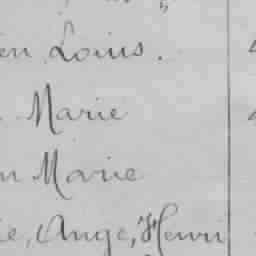 en Louis.
Marie
n Marie
ie, Ange, Henri